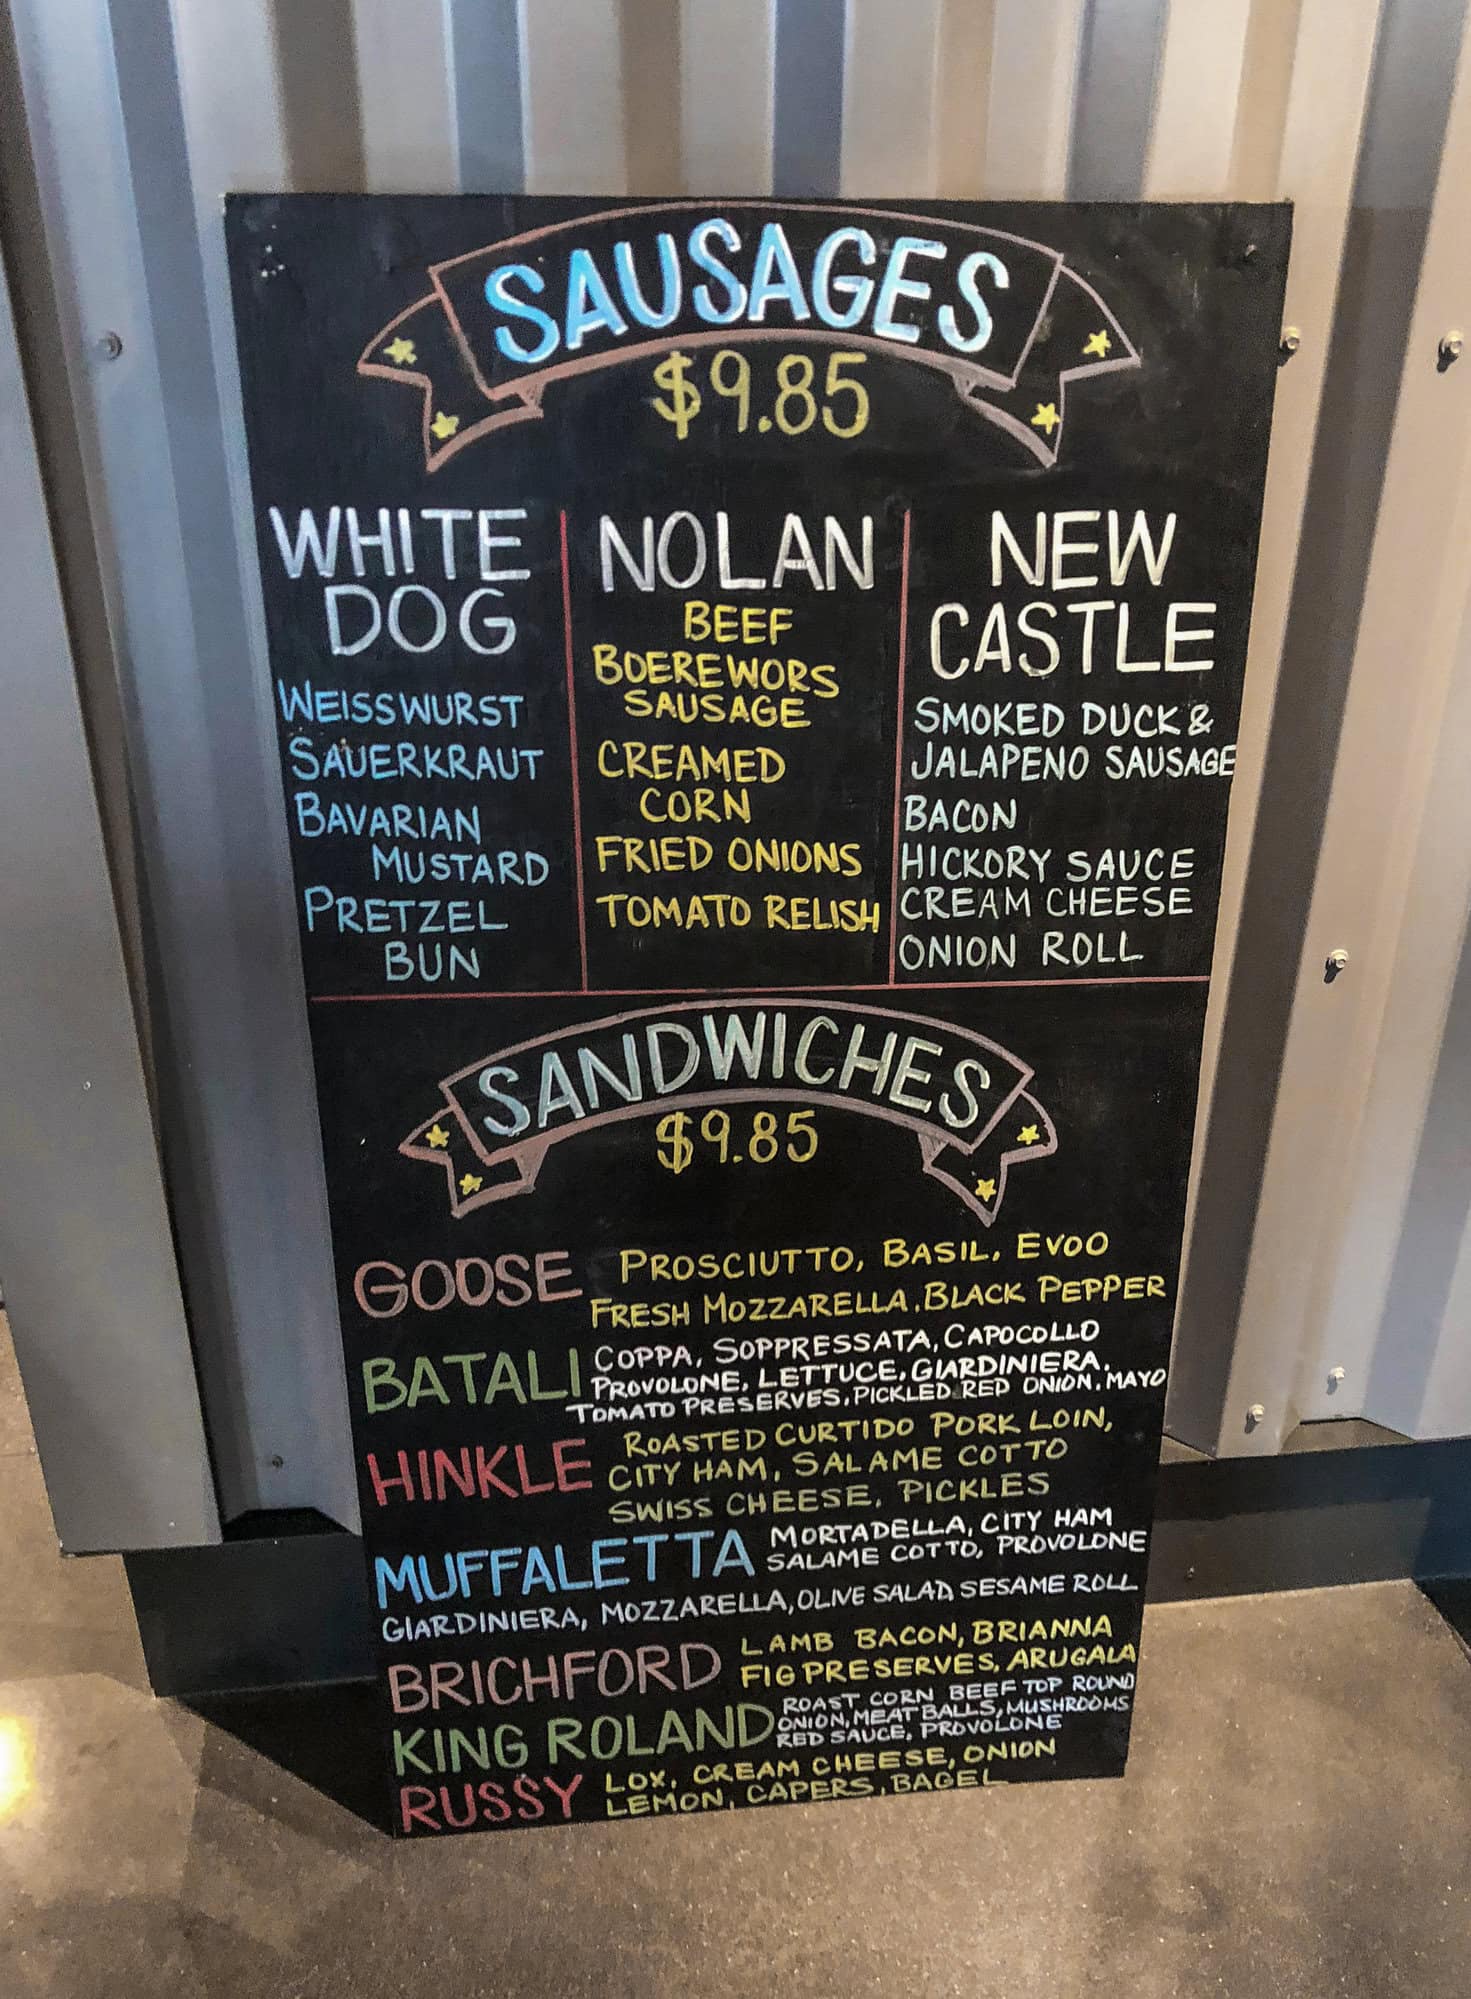 SAUSAGES
$9.85
WHITE
DOG
WEISSWURST
SAUERKRAUT
BAVARIAN
MUSTARD
PRETZEL
BUN
NOLAN
BEEF
BOEREWORS
SAUSAGE
CREAMED
CORN
FRIED ONIONS
TOMATO RELISH
NEW
CASTLE
SMOKED DUCK &
JALAPENO SAUSAGE
BACON
HICKORY SAUCE
CREAM CHEESE
ONION ROLL
SANDWICHES
$9.85
GOOSE
PROSCIUTTO, BASIL, EVOO
FRESH MOZZARELLA, BLACK PEPPER
BATALI
COPPA, SOPPRESSATA, CAPOCOLLO
PROVOLONE, LETTUCE, GIARDINIERA,
TOMATO PRESERVES, PICKLED RED ONION, MAYO
HINKLE
ROASTED CURTIDO PORK LOIN,
CITY HAM, SALAME COTTO
SWISS CHEESE, PICKLES
MUFFALETTA
MORTADELLA, CITY HAM
SALAME COTTO, PROVOLONE
GIARDINIERA, MOZZARELLA, OLIVE SALAD, SESAME ROLL
BRICHFORD
LAMB BACON, BRIANNA
FIG PRESERVES, ARUGALA
KING ROLAND
ROAST CORN BEEF TOP ROUND
ONION, MEAT BALLS, MUSHROOMS
RED SAUCE, PROVOLONE
RUSSY
LOX, CREAM CHEESE, ONION
LEMON, CAPERS, BAGEL